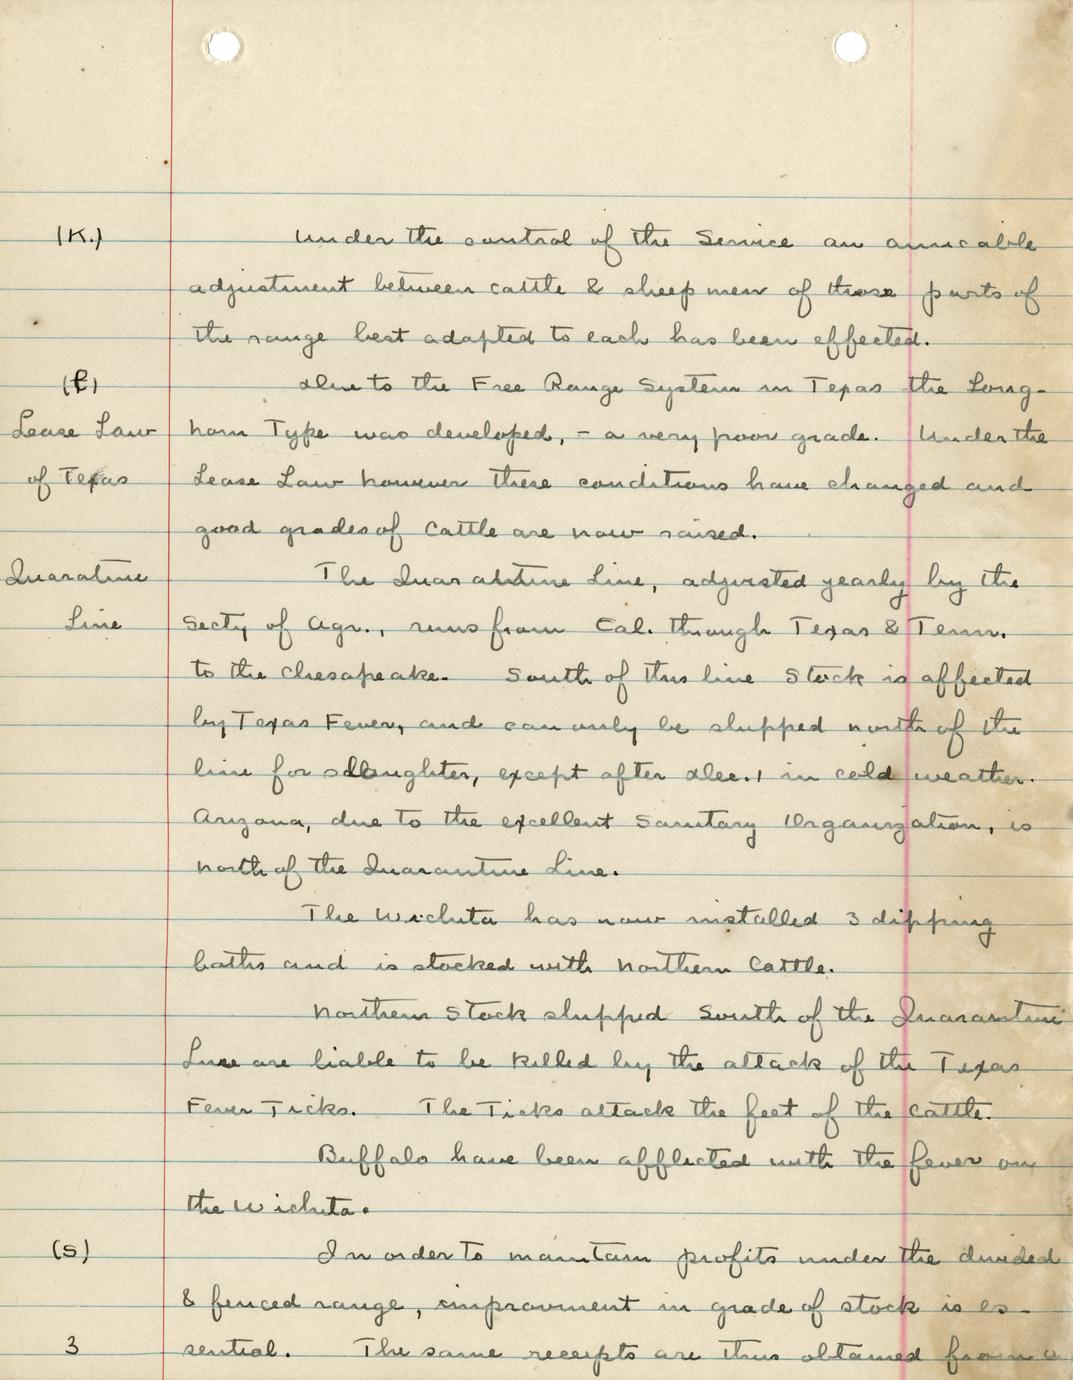 (K.) Under the control of the Service an amicable
adjustment between cattle & sheep men of those parts of
the range best adapted to each has been effected.
(L) Due to the Free Range System in Texas the Long-
Lease Law horn Type was developed, - a very poor grade. Under the
of Texas Lease Law however these conditions have changed and
good grades of Cattle are now raised.
Quaratine The Quarantine Line, adjusted yearly by the
Line Secty of Agr., runs from Cal. through Texas & Tenn.
to the Chesapeake. South of this line Stock is affected
by Texas Fever, and can only be shipped north of the
line for slaughter, except after Dec. 1 in cold weather.
Arizona, due to the excellent Sanitary Organization, is
north of the Quarantine Line.
The Wichita has now installed 3 dipping
baths and is stocked with Northern Cattle.
Northern Stock shipped South of the Quarantine
Line are liable to be killed by the attack of the Texas
Fever Ticks. The Ticks attack the feet of the cattle.
Buffalo have been afflicted with the fever on
the Wichita.
(S) In order to maintain profits under the divided
& fenced range, improvment in grade of stock is es-
3 sential. The same receipts are thus obtained from a